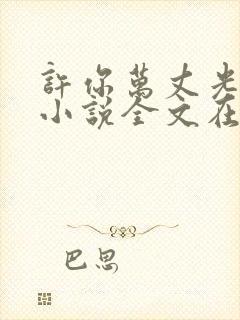 許你萬丈光
小說全文在
巴思